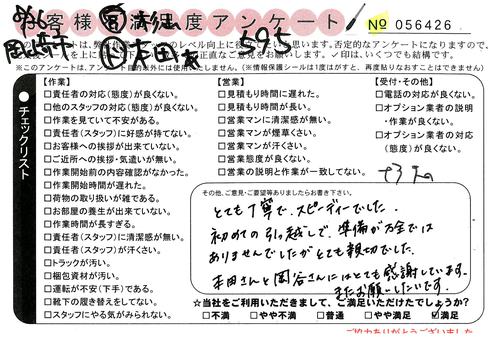 お客様満足度アンケート
No 056426
595
チェックリスト
【作業】
□責任者の対応(態度)が良くない。
□他のスタッフの対応(態度)が良くない。
□作業を見ていて不安がある。
□責任者(スタッフ)に好感が持てない。
□お客様への挨拶が出来ていない。
□ご近所への挨拶・気遣いが無い。
□作業開始前の内容確認がなかった。
□作業開始時間が遅れた。
□荷物の取り扱いが雑である。
□お部屋の養生が出来ていない。
□作業時間が長すぎる。
□責任者(スタッフ)に清潔感が無い。
□責任者(スタッフ)が汗くさい。
□トラックが汚い。
□梱包資材が汚い。
□運転が不安(下手)である。
□靴下の履き替えをしてない。
□スタッフにやる気がみられない。
【営業】
□見積もり時間に遅れた。
□見積もり時間が長い。
□営業マンに清潔感が無い。
□営業マンが煙草くさい。
□営業マンが汗くさい。
□営業態度が良くない。
□営業の説明と作業が一致してない。
【受付・その他】
□電話の対応が良くない。
□オプション業者の説明
・作業が良くない。
□オプション業者の対応
(態度)が良くない。
その他、ご意見・ご要望等ありましたらお書き下さい。
とても丁寧で、スピーディーでした。
初めての引っ越しで、準備が万全では
ありませんでしたがとても親切でした。
本田さんと岡谷さんにはとても感謝しています。
またお願いしたいです。
☆当社をご利用いただきまして、ご満足いただけたでしょうか?
□不満 □やや不満 □普通 □やや満足 ☑満足
ご協力ありがとうございました